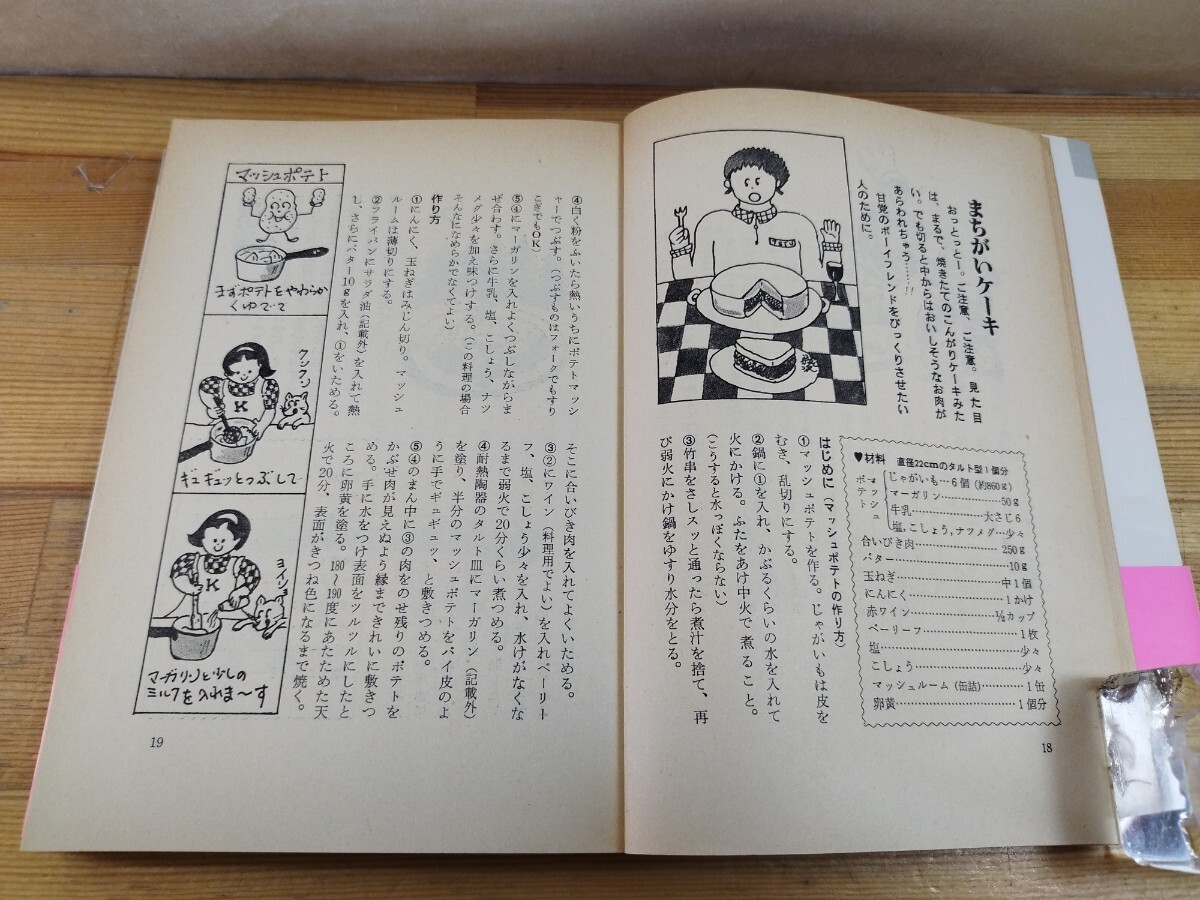 まちがいケーキ
おっとっとー。ご注意、ご注意。見た目
は、まるで、焼きたてのこんがりケーキみた
い。でも切ると中からはおいしそうなお肉が
あらわれちゃう……!!
甘党のボーイフレンドをびっくりさせたい
人のために。
♥材料 直径22cmのタルト型1個分
マッシュポテト
じゃがいも…6個(約860g)
マーガリン……50g
牛乳……大さじ6
塩,こしょう,ナツメグ…少々
合いびき肉……250g
バター……10g
玉ねぎ……中1個
にんにく……1かけ
赤ワイン……½カップ
ベーリーフ……1枚
塩……少々
こしょう……少々
マッシュルーム(缶詰)……1缶
卵黄……1個分
はじめに(マッシュポテトの作り方)
①マッシュポテトを作る。じゃがいもは皮を
むき、乱切りにする。
②鍋に①を入れ、かぶるくらいの水を入れて
火にかける。ふたをあけ中火で煮ること。
(こうすると水っぽくならない)
③竹串をさしスッと通ったら煮汁を捨て、再
び弱火にかけ鍋をゆすり水分をとる。
18
④白く粉をふいたら熱いうちにポテトマッシ
ャーでつぶす。(つぶすものはフォークでもすり
こぎでもOK)
⑤④にマーガリンを入れよくつぶしながらま
ぜ合わす。さらに牛乳、塩、こしょう、ナツ
メグ少々を加え味つけする。(この料理の場合
そんなになめらかでなくてよい)
作り方
①にんにく、玉ねぎはみじん切り。マッシュ
ルームは薄切りにする。
②フライパンにサラダ油(記載外)を入れて熱
し、さらにバター10gを入れ、①をいためる。
そこに合いびき肉を入れてよくいためる。
③②にワイン(料理用でよい)を入れベーリー
フ、塩、こしょう少々を入れ、水けがなくな
るまで弱火で20分くらい煮つめる。
④耐熱陶器のタルト皿にマーガリン(記載外)
を塗り、半分のマッシュポテトをパイ皮のよ
うに手でギュギュッ、と敷きつめる。
⑤④のまん中に③の肉をのせ残りのポテトを
かぶせ肉が見えぬよう縁まできれいに敷きつ
める。手に水をつけ表面をツルツルにしたと
ころに卵黄を塗る。180〜190度にあたためた天
火で20分、表面がきつね色になるまで焼く。
マッシュポテト
まずポテトをやわらか
くゆでて
クンクン
K
ギュギュッとつぶして
ヨイショ
K
マーガリンと少しの
ミルクを入れま〜す
19